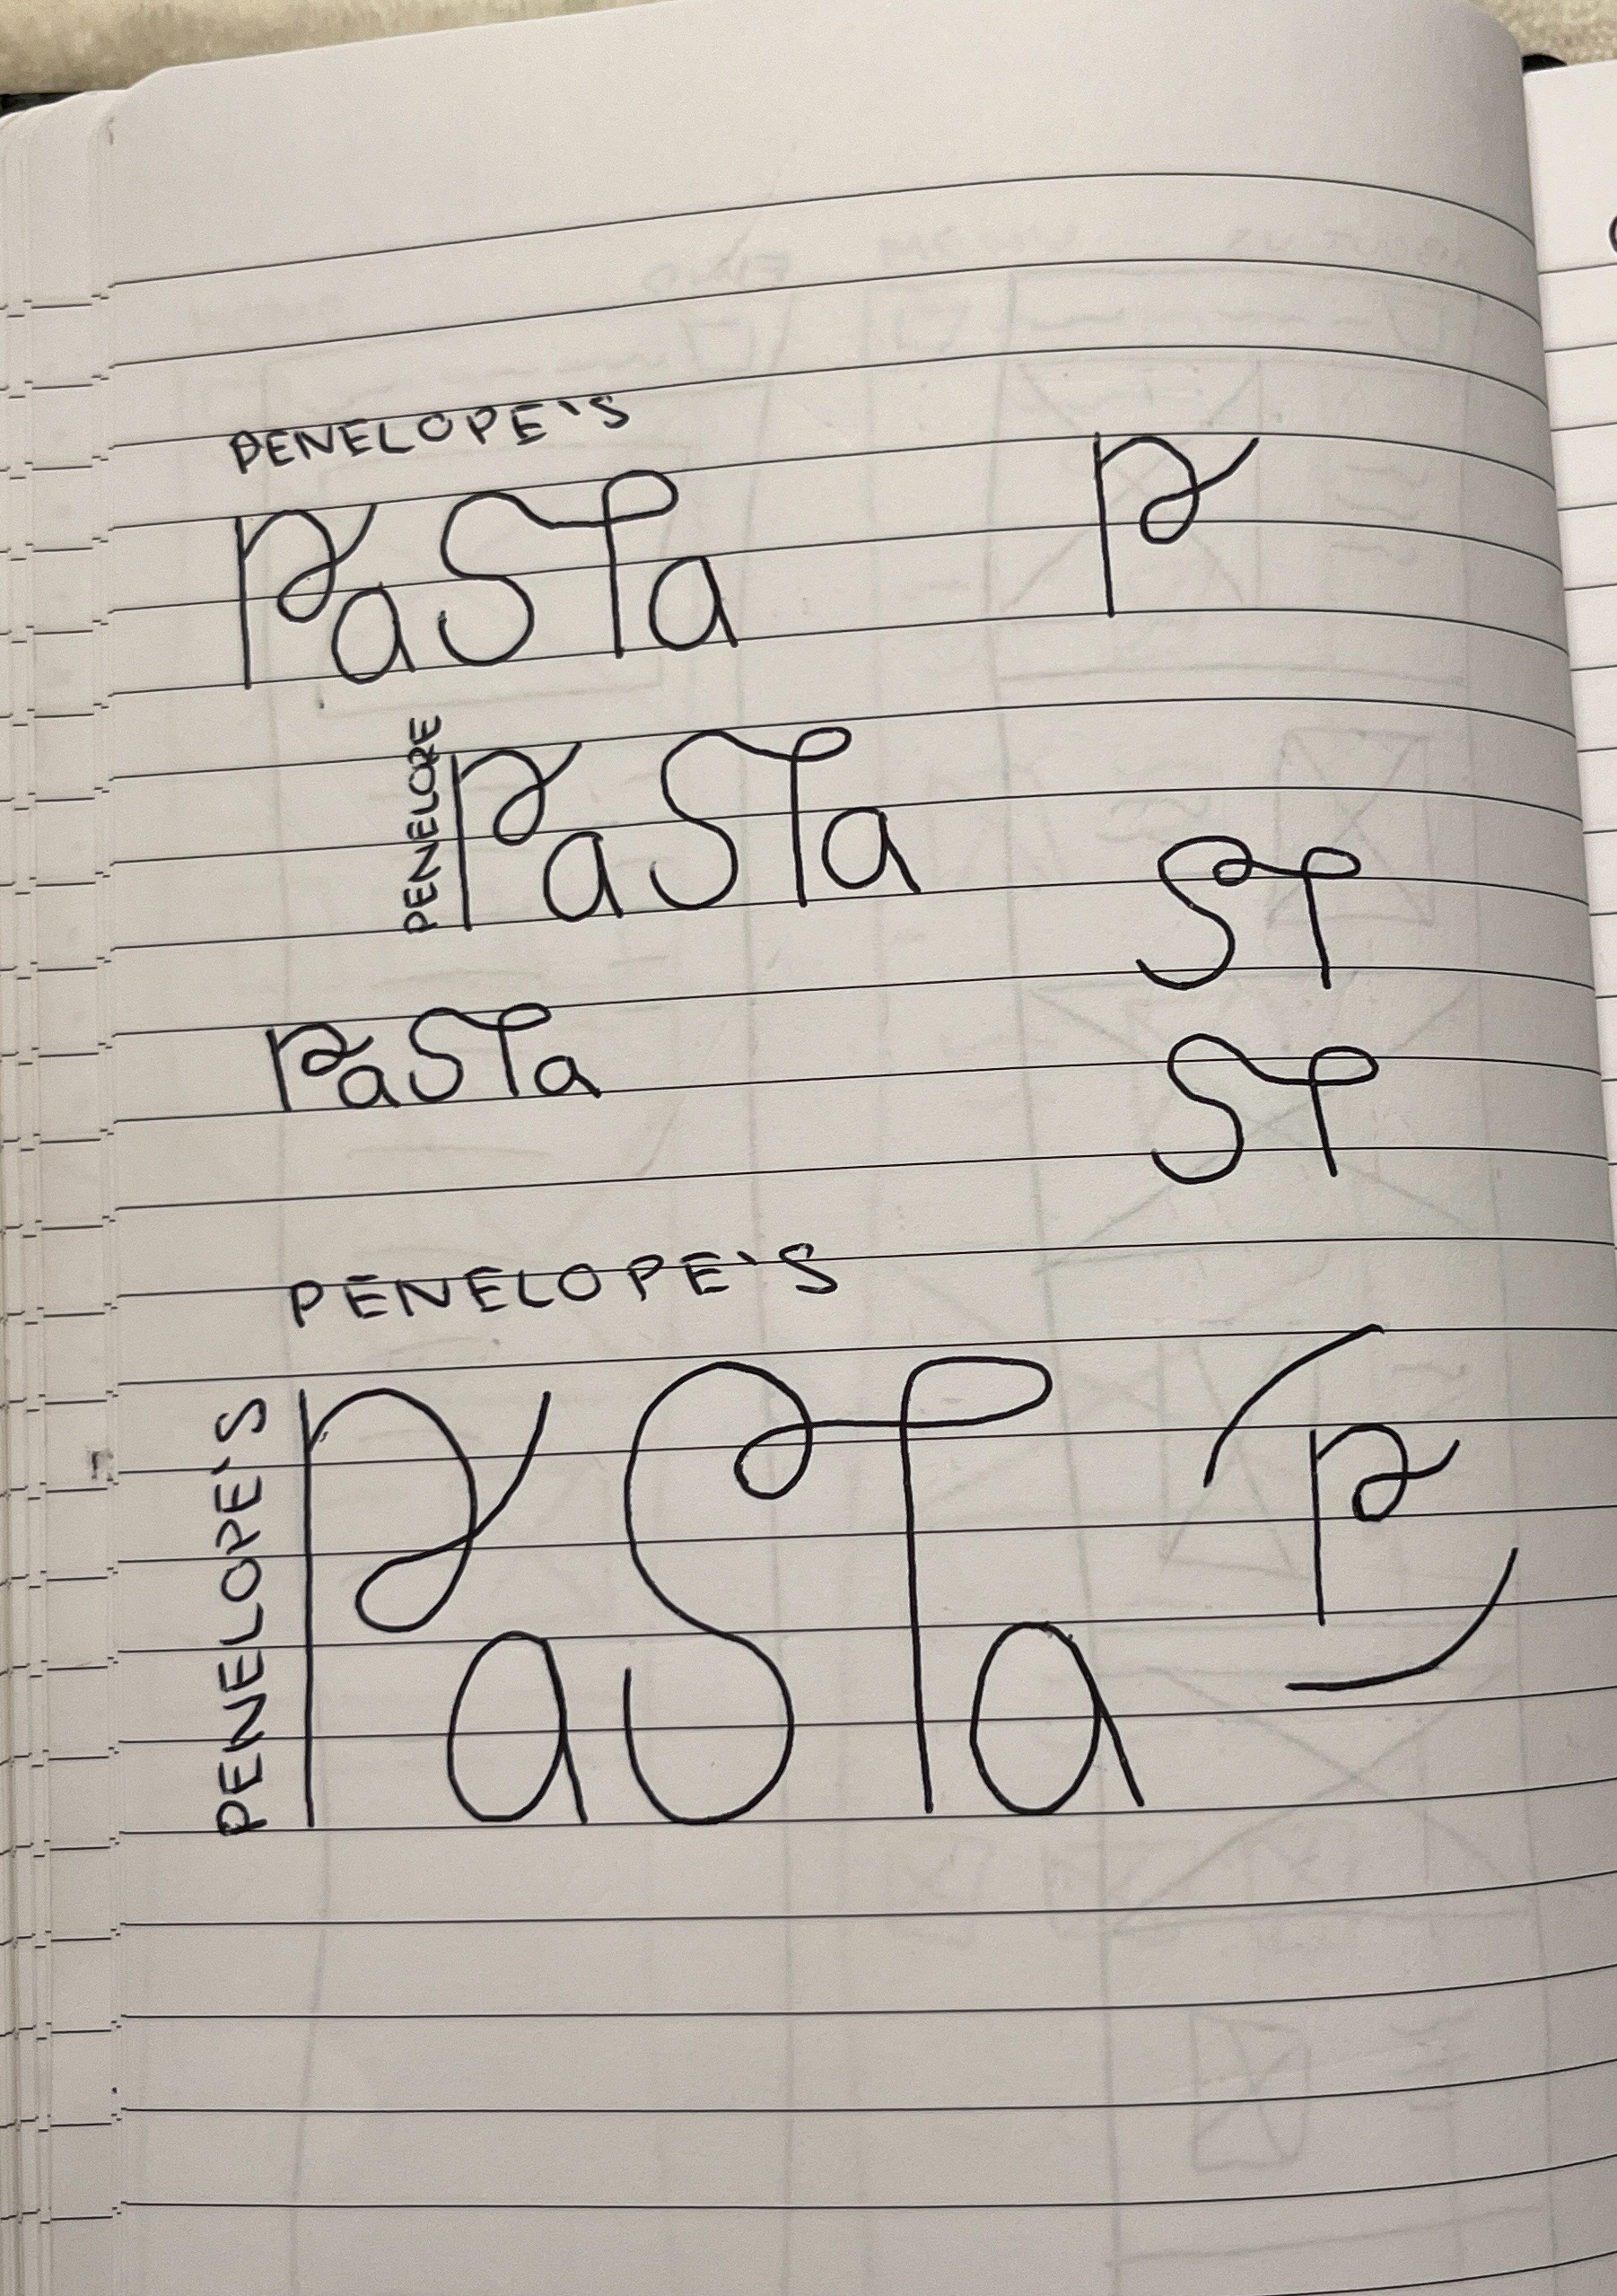 PENELOPE'S
PaSTa
P
PENELOPE
PaSTa
ST
PaSTa
ST
PENELOPE'S
PENELOPE'S
PaSTa
P